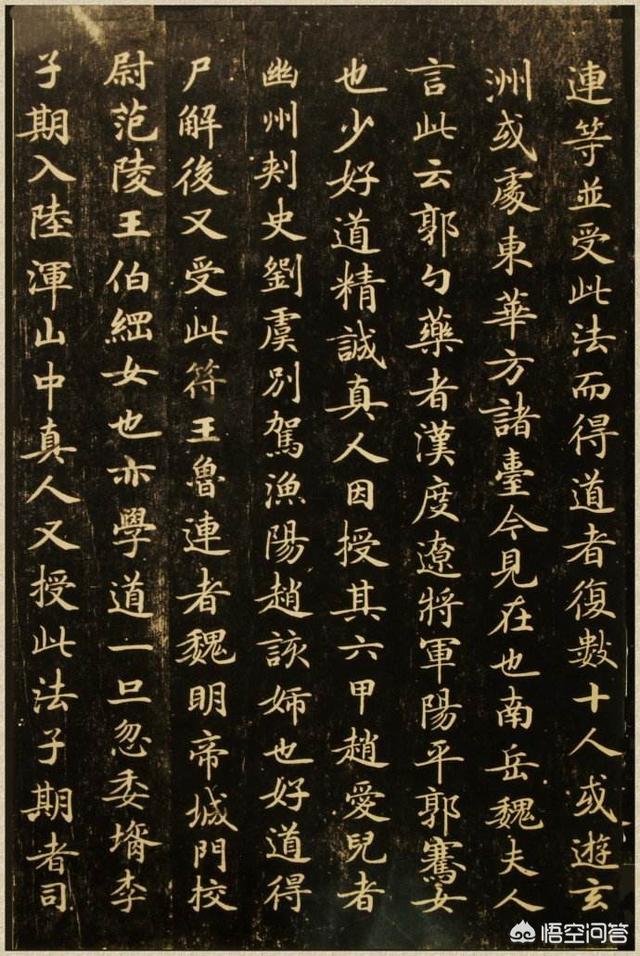 連等並受此法而得道者復數十人或遊玄
洲或處東華方諸臺今見在也南岳魏夫人
言此云郭勺藥者漢度遼將軍陽平郭騫女
也少好道精誠真人因授其六甲趙愛兒者
幽州刾史劉虞別駕漁陽趙該姊也好道得
尸解後又受此符王魯連者魏明帝城門校
尉范陵王伯綱女也亦學道一旦忽委壻李
子期入陸渾山中真人又授此法子期者司
悟空问答